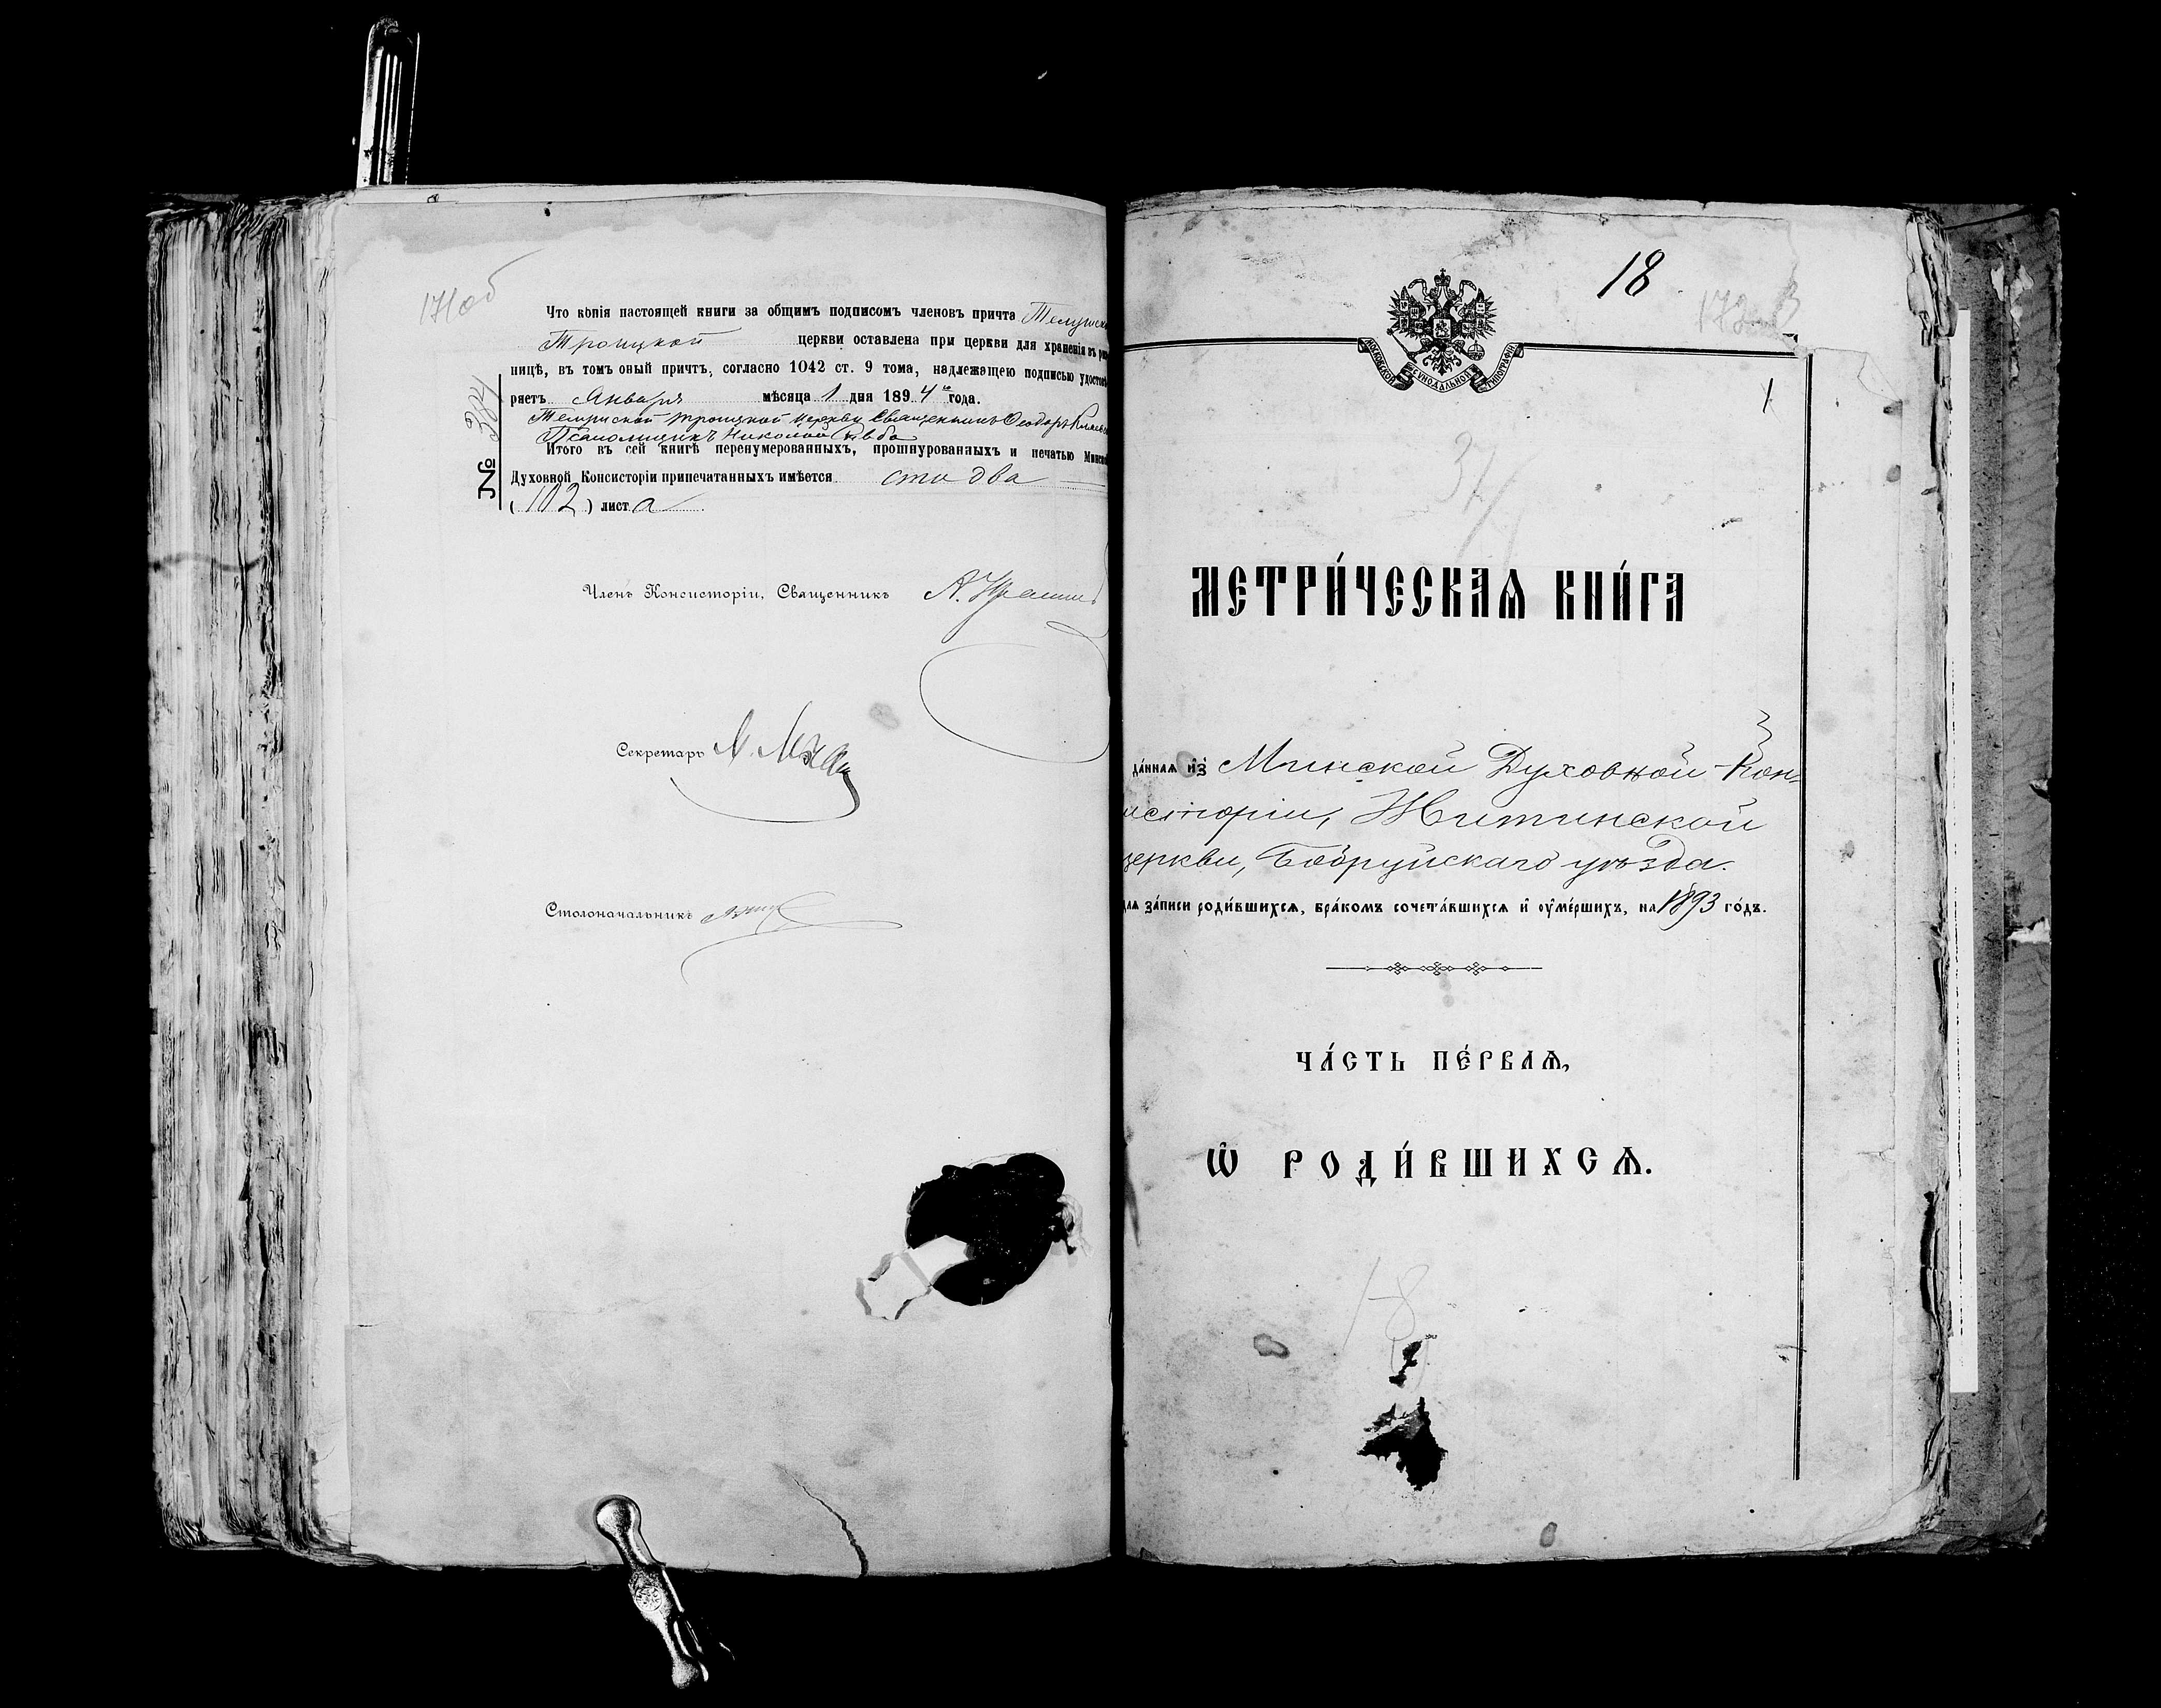 171об
Что копія настоящей книги за общимъ подписомъ членовъ причта
Троицкой церкви оставлена при церкви для храненія въ
ницѣ, въ томъ оный причтъ, согласно 1042 ст. 9 тома, надлежащею подписью удостовѣ
ряетъ Января мѣсяца 1 дня 1894 года.
Троицкой церкви Священникъ Ѳеодоръ
Псаломщикъ Николай
Итого въ сей книгѣ перенумерованныхъ, прошнурованныхъ и печатью Минской
Духовной Консисторіи припечатанныхъ имѣется сто два
(102) листа
№ 384
Членъ Консисторіи, Священникъ А.
Секретарь
Столоначальникъ
18
172
МОСКОВСКОЙ СѴНОДАЛЬНОЙ ТИПОГРАФІИ
1
МЕТРИ́ЧЕСКАѦ КНИ́ГА
да́ннаѧ и҆з̾ Минской Духовной Кон-
исторіи, Житинской
церкви, Бобруйскаго уѣзда.
для за́писи роди́вшихсѧ, бра́комъ сочета́вшихсѧ и҆ оу҆ме́ршихъ, на 1893 го́дъ.
ЧА́СТЬ ПЕ́РВАѦ,
Ѽ РОДИ́ВШИХСѦ.
18